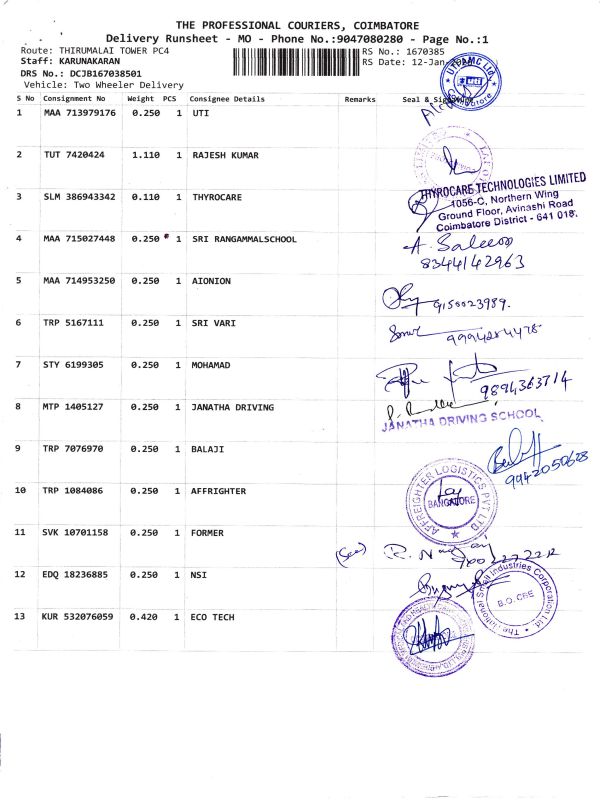 THE PROFESSIONAL COURIERS, COIMBATORE
Delivery Runsheet - MO - Phone No.:9047080280 - Page No.:1
Route: THIRUMALAI TOWER PC4 RS No.: 1670385
Staff: KARUNAKARAN RS Date: 12-Jan-
DRS No.: DCJB167038501
Vehicle: Two Wheeler Delivery
S No Consignment No Weight PCS Consignee Details Remarks Seal &
1 MAA 713979176 0.250 1 UTI
2 TUT 7420424 1.110 1 RAJESH KUMAR
3 SLM 386943342 0.110 1 THYROCARE
THYROCARE TECHNOLOGIES LIMITED
1056-C, Northern Wing
Ground Floor, Avinashi Road
Coimbatore District - 641 018.
4 MAA 715027448 0.250 1 SRI RANGAMMALSCHOOL
A. Saleem
8344142963
5 MAA 714953250 0.250 1 AIONION
9150023989.
6 TRP 5167111 0.250 1 SRI VARI
7 STY 6199305 0.250 1 MOHAMAD
9894363714
8 MTP 1405127 0.250 1 JANATHA DRIVING
JANATHA DRIVING SCHOOL
9 TRP 7076970 0.250 1 BALAJI
9942050628
10 TRP 1084086 0.250 1 AFFRIGHTER
AFFREIGHTER LOGISTICS PVT LTD
BANGALORE
11 SVK 10701158 0.250 1 FORMER
12 EDQ 18236885 0.250 1 NSI
The National Small Industries Corporation Ltd.
B.O. CBE
13 KUR 532076059 0.420 1 ECO TECH